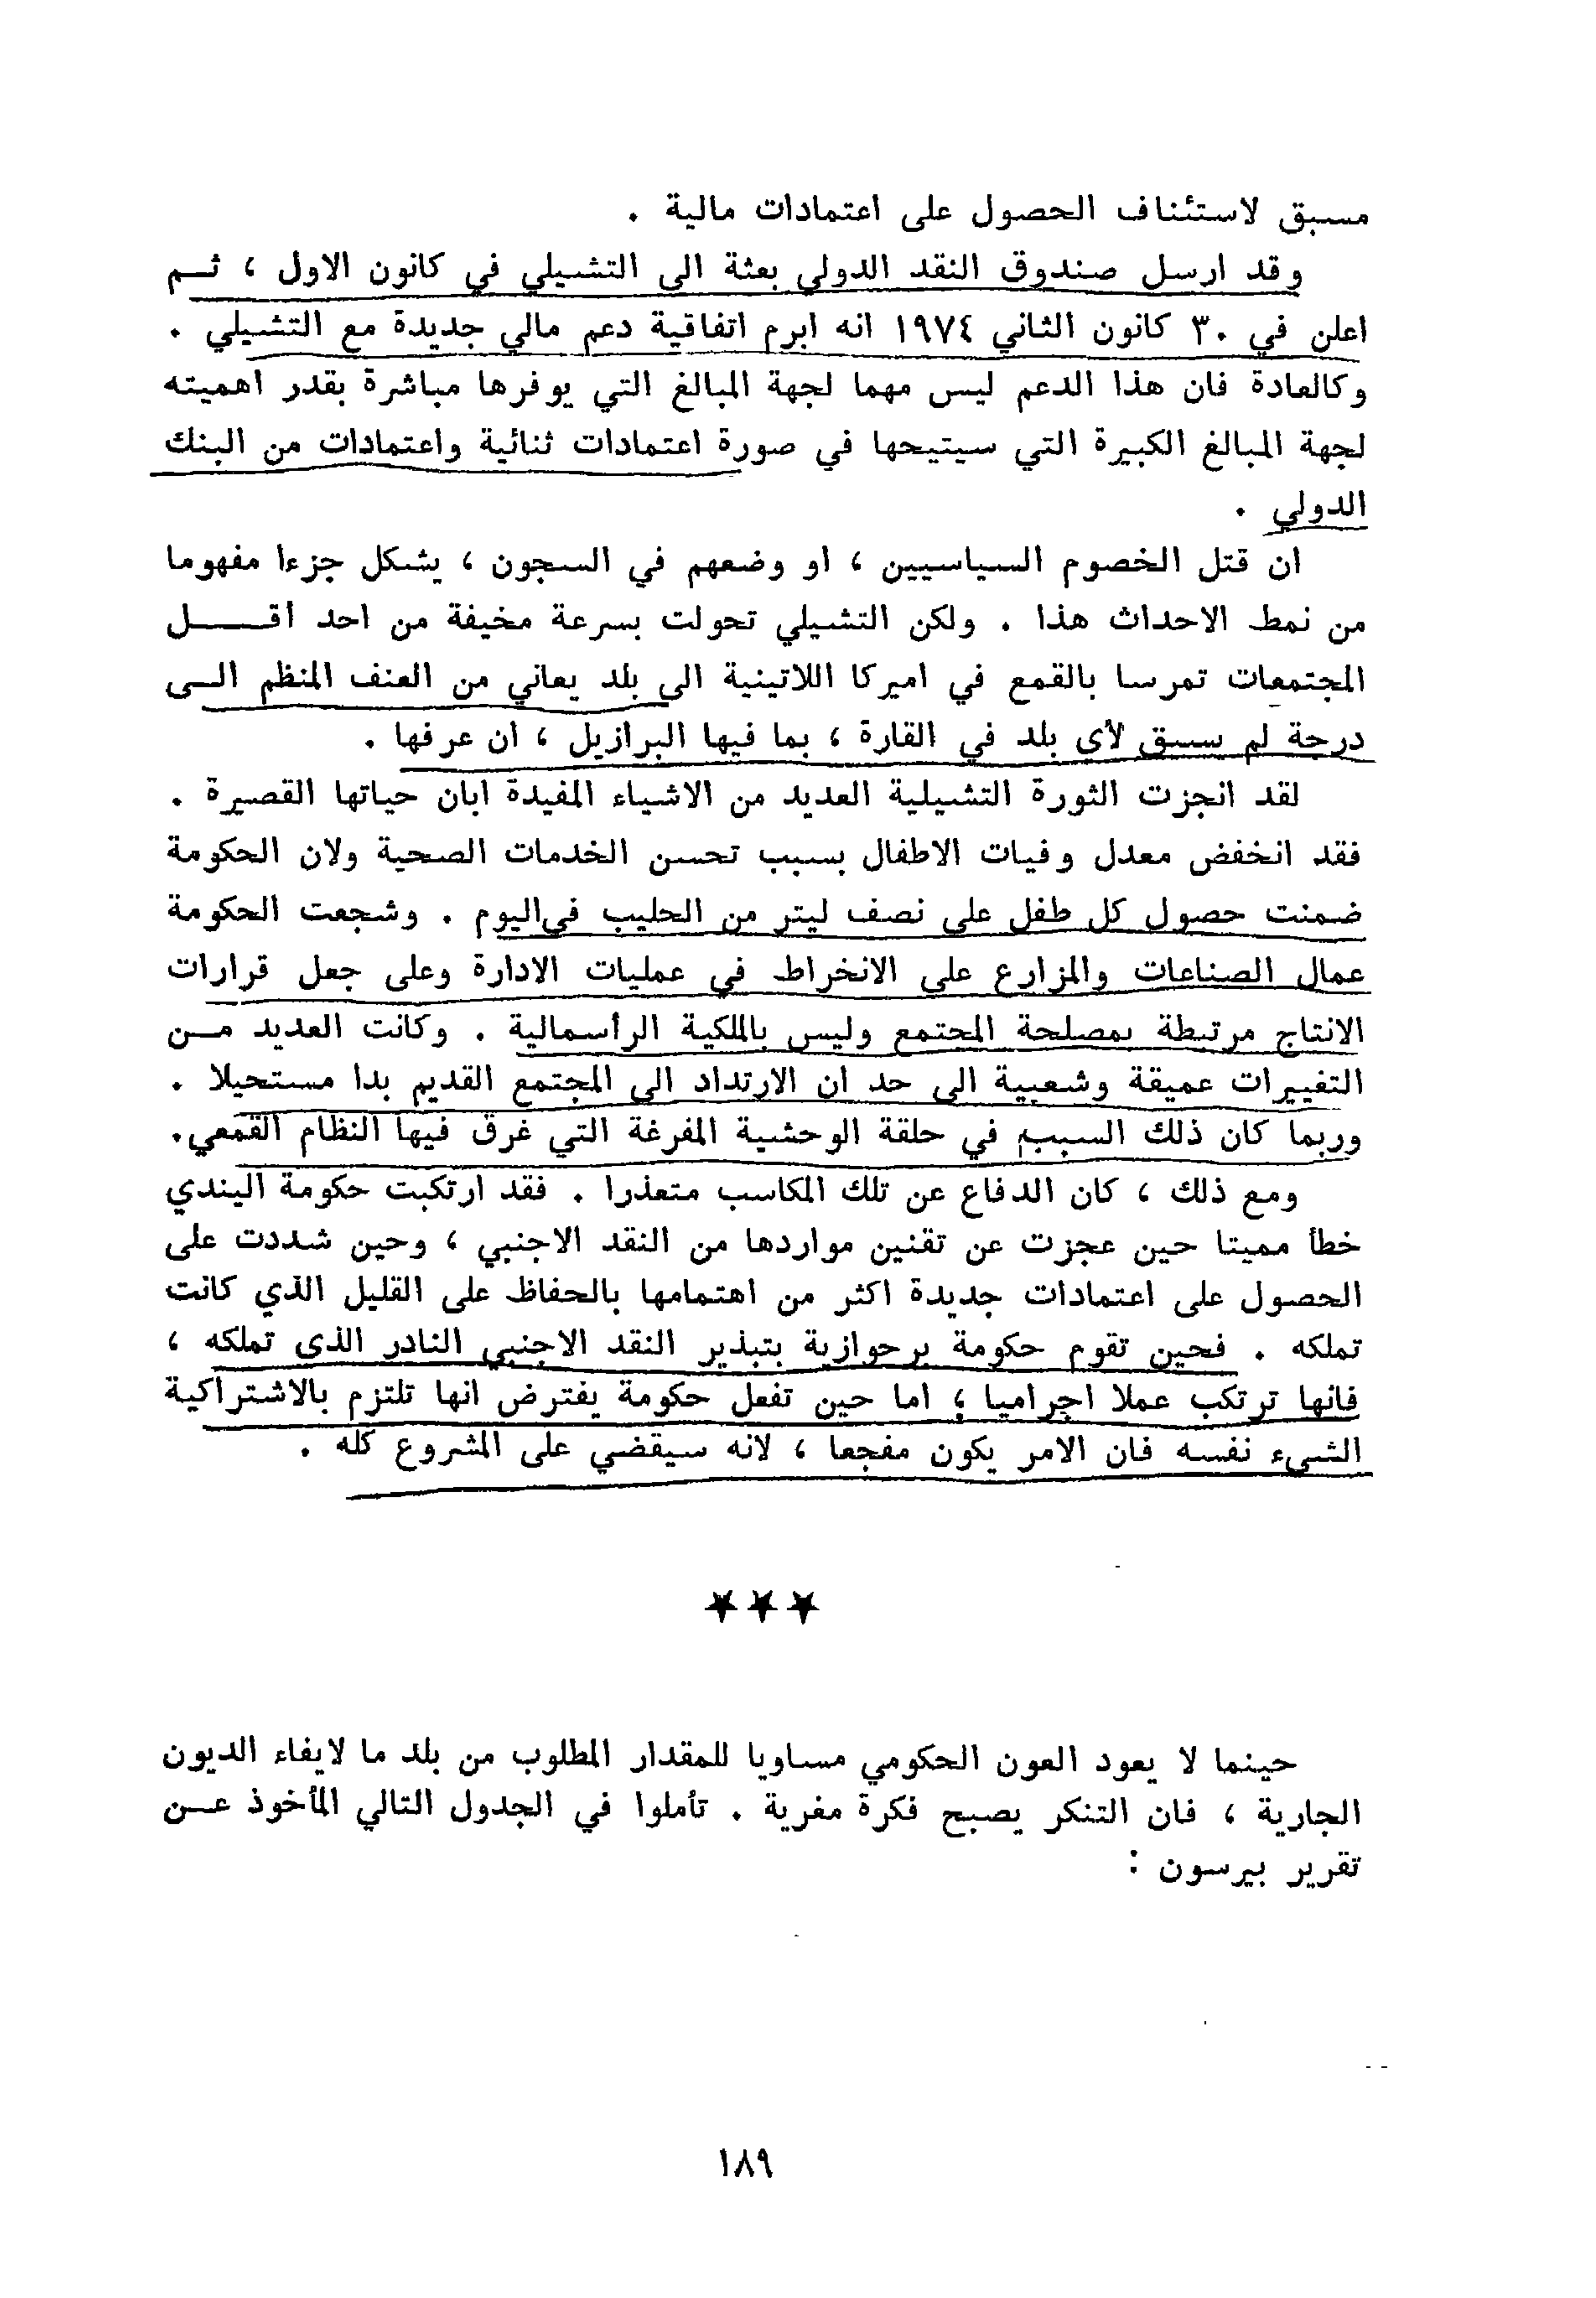 مسبق لاستئناف الحصول على اعتمادات مالية .
وقد ارسل صندوق النقد الدولي بعثة الى التشيلي في كانون الاول ، ثـم
اعلن في ٣٠ كانون الثاني ١٩٧٤ انه ابرم اتفاقية دعم مالي جديدة مع التشيلي .
وكالعادة فان هذا الدعم ليس مهما لجهة المبالغ التي يوفرها مباشرة بقدر اهميته
لجهة المبالغ الكبيرة التي سيتيحها في صورة اعتمادات ثنائية واعتمادات من البنك
الدولي .
ان قتل الخصوم السياسيين ، او وضعهم في السجون ، يشكل جزءا مفهوما
من نمط الاحداث هذا . ولكن التشيلي تحولت بسرعة مخيفة من احد اقــــل
المجتمعات تمرسا بالقمع في اميركا اللاتينية الى بلد يعاني من العنف المنظم الـى
درجة لم يسبق لأي بلد في القارة ، بما فيها البرازيل ، ان عرفها .
لقد انجزت الثورة التشيلية العديد من الاشياء المفيدة ابان حياتها القصيرة .
فقد انخفض معدل وفيات الاطفال بسبب تحسن الخدمات الصحية ولان الحكومة
ضمنت حصول كل طفل على نصف ليتر من الحليب في اليوم . وشجعت الحكومة
عمال الصناعات والمزارع على الانخراط في عمليات الادارة وعلى جعل قرارات
الانتاج مرتبطة بمصلحة المجتمع وليس بالملكية الرأسمالية . وكانت العديد مـن
التغييرات عميقة وشعبية الى حد ان الارتداد الى المجتمع القديم بدا مستحيلا .
وربما كان ذلك السبب في حلقة الوحشية المفرغة التي غرق فيها النظام القمعي.
ومع ذلك ، كان الدفاع عن تلك المكاسب متعذرا . فقد ارتكبت حكومة اليندي
خطأ مميتا حين عجزت عن تقنين مواردها من النقد الاجنبي ، وحين شددت على
الحصول على اعتمادات جديدة اكثر من اهتمامها بالحفاظ على القليل الذي كانت
تملكه . فحين تقوم حكومة برجوازية بتبذير النقد الاجنبي النادر الذي تملكه ،
فانها ترتكب عملا اجراميا ؛ اما حين تفعل حكومة يفترض انها تلتزم بالاشتراكية
الشيء نفسه فان الامر يكون مفجعا ، لانه سيقضي على المشروع كله .
★★★
حينما لا يعود العون الحكومي مساويا للمقدار المطلوب من بلد ما لايفاء الديون
الجارية ، فان التنكر يصبح فكرة مغرية . تأملوا في الجدول التالي المأخوذ عـن
تقرير بيرسون :
١٨٩